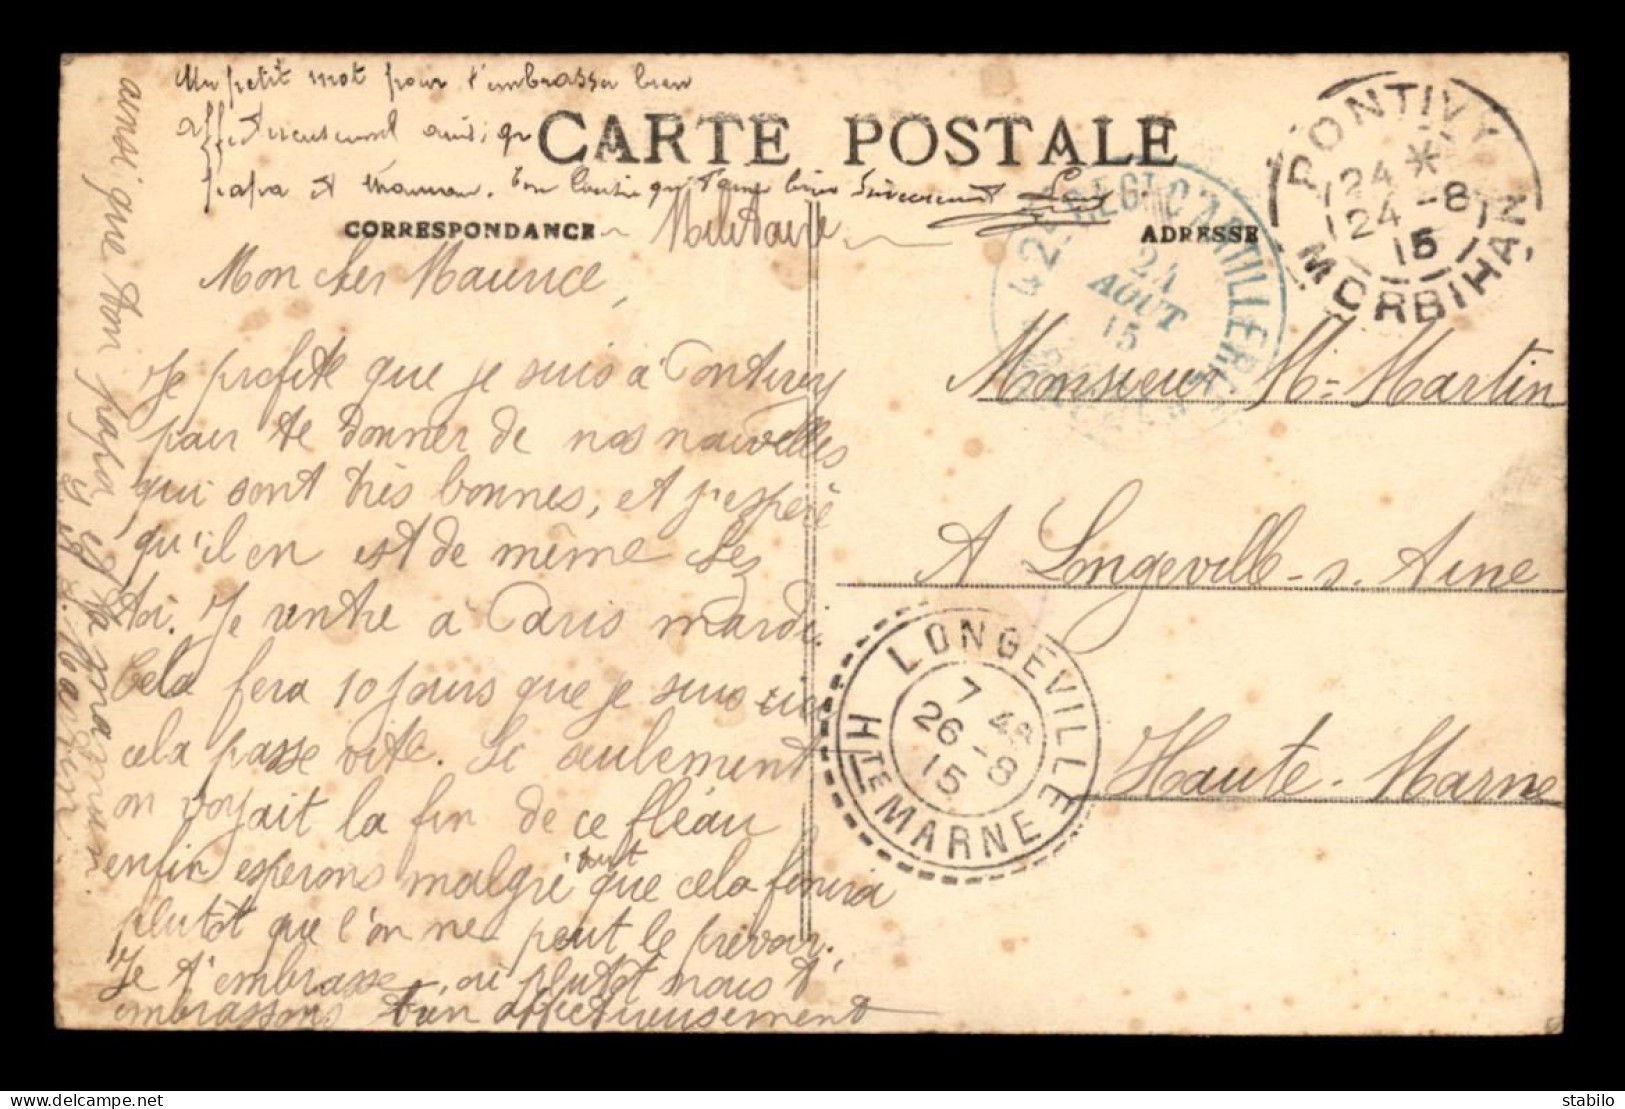 Un petit mot pour t'embrasser bien
affectueusement ainsi que
papa et maman. Ton cousin qui t'aime bien sincèrement
CARTE POSTALE
CORRESPONDANCE
Militaire
ADRESSE
Mon cher Maurice,
Je profite que je suis à Pontivy
pour te donner de nos nouvelles
qui sont très bonnes, et j'espère
qu'il en est de même chez
toi. Je rentre à Paris mardi.
Cela fera 10 jours que je suis ici
cela passe vite. Si seulement
on voyait la fin de ce fléau
enfin esperons malgré tout que cela finira
plutôt que l'on ne peut le prévoir.
Je t'embrasse, ou plutôt nous t'
embrassons bien affectueusement
ainsi que ton papa et ta maman.
Martin
PONTIVY
24 *
24 -8
15
MORBIHAN
REGT D'ARTILLERIE
24
AOUT
15
Monsieur M= Martin
A Longeville-s. Aine
Haute-Marne
LONGEVILLE
7 45
26 -8
15
HTE MARNE
delcampe.net
stabilo